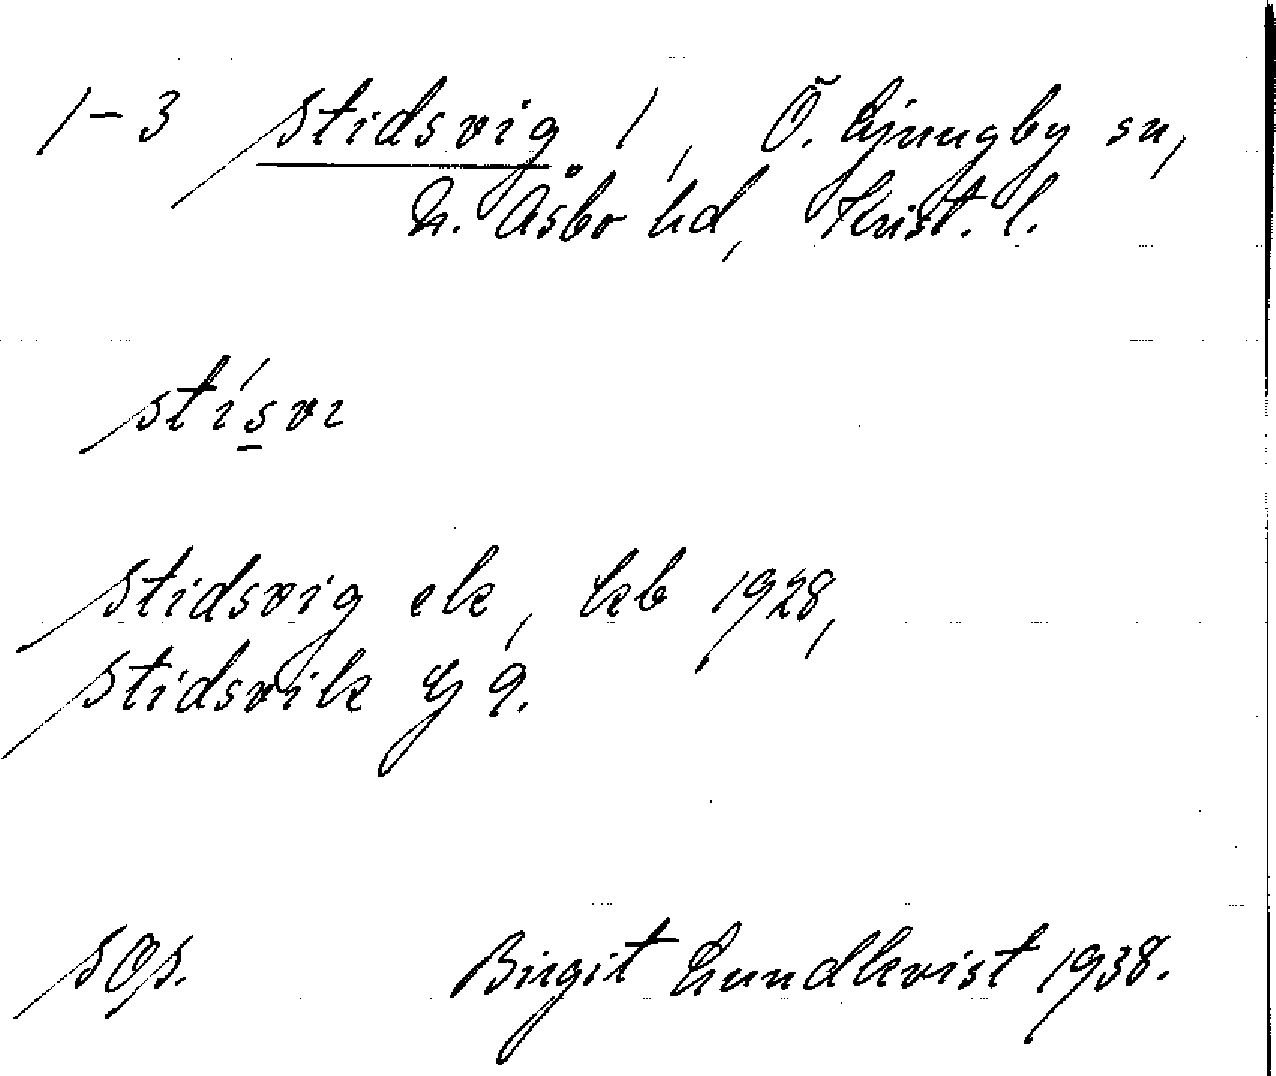 1-3 Stidsvig 1, Ö. Ljungby sn,
N. Åsbo hd, Krist. l.
stísvi
Stidsvig ek, kb 1928,
Stidsvik G 9.
Birgit Lundkvist 1938.